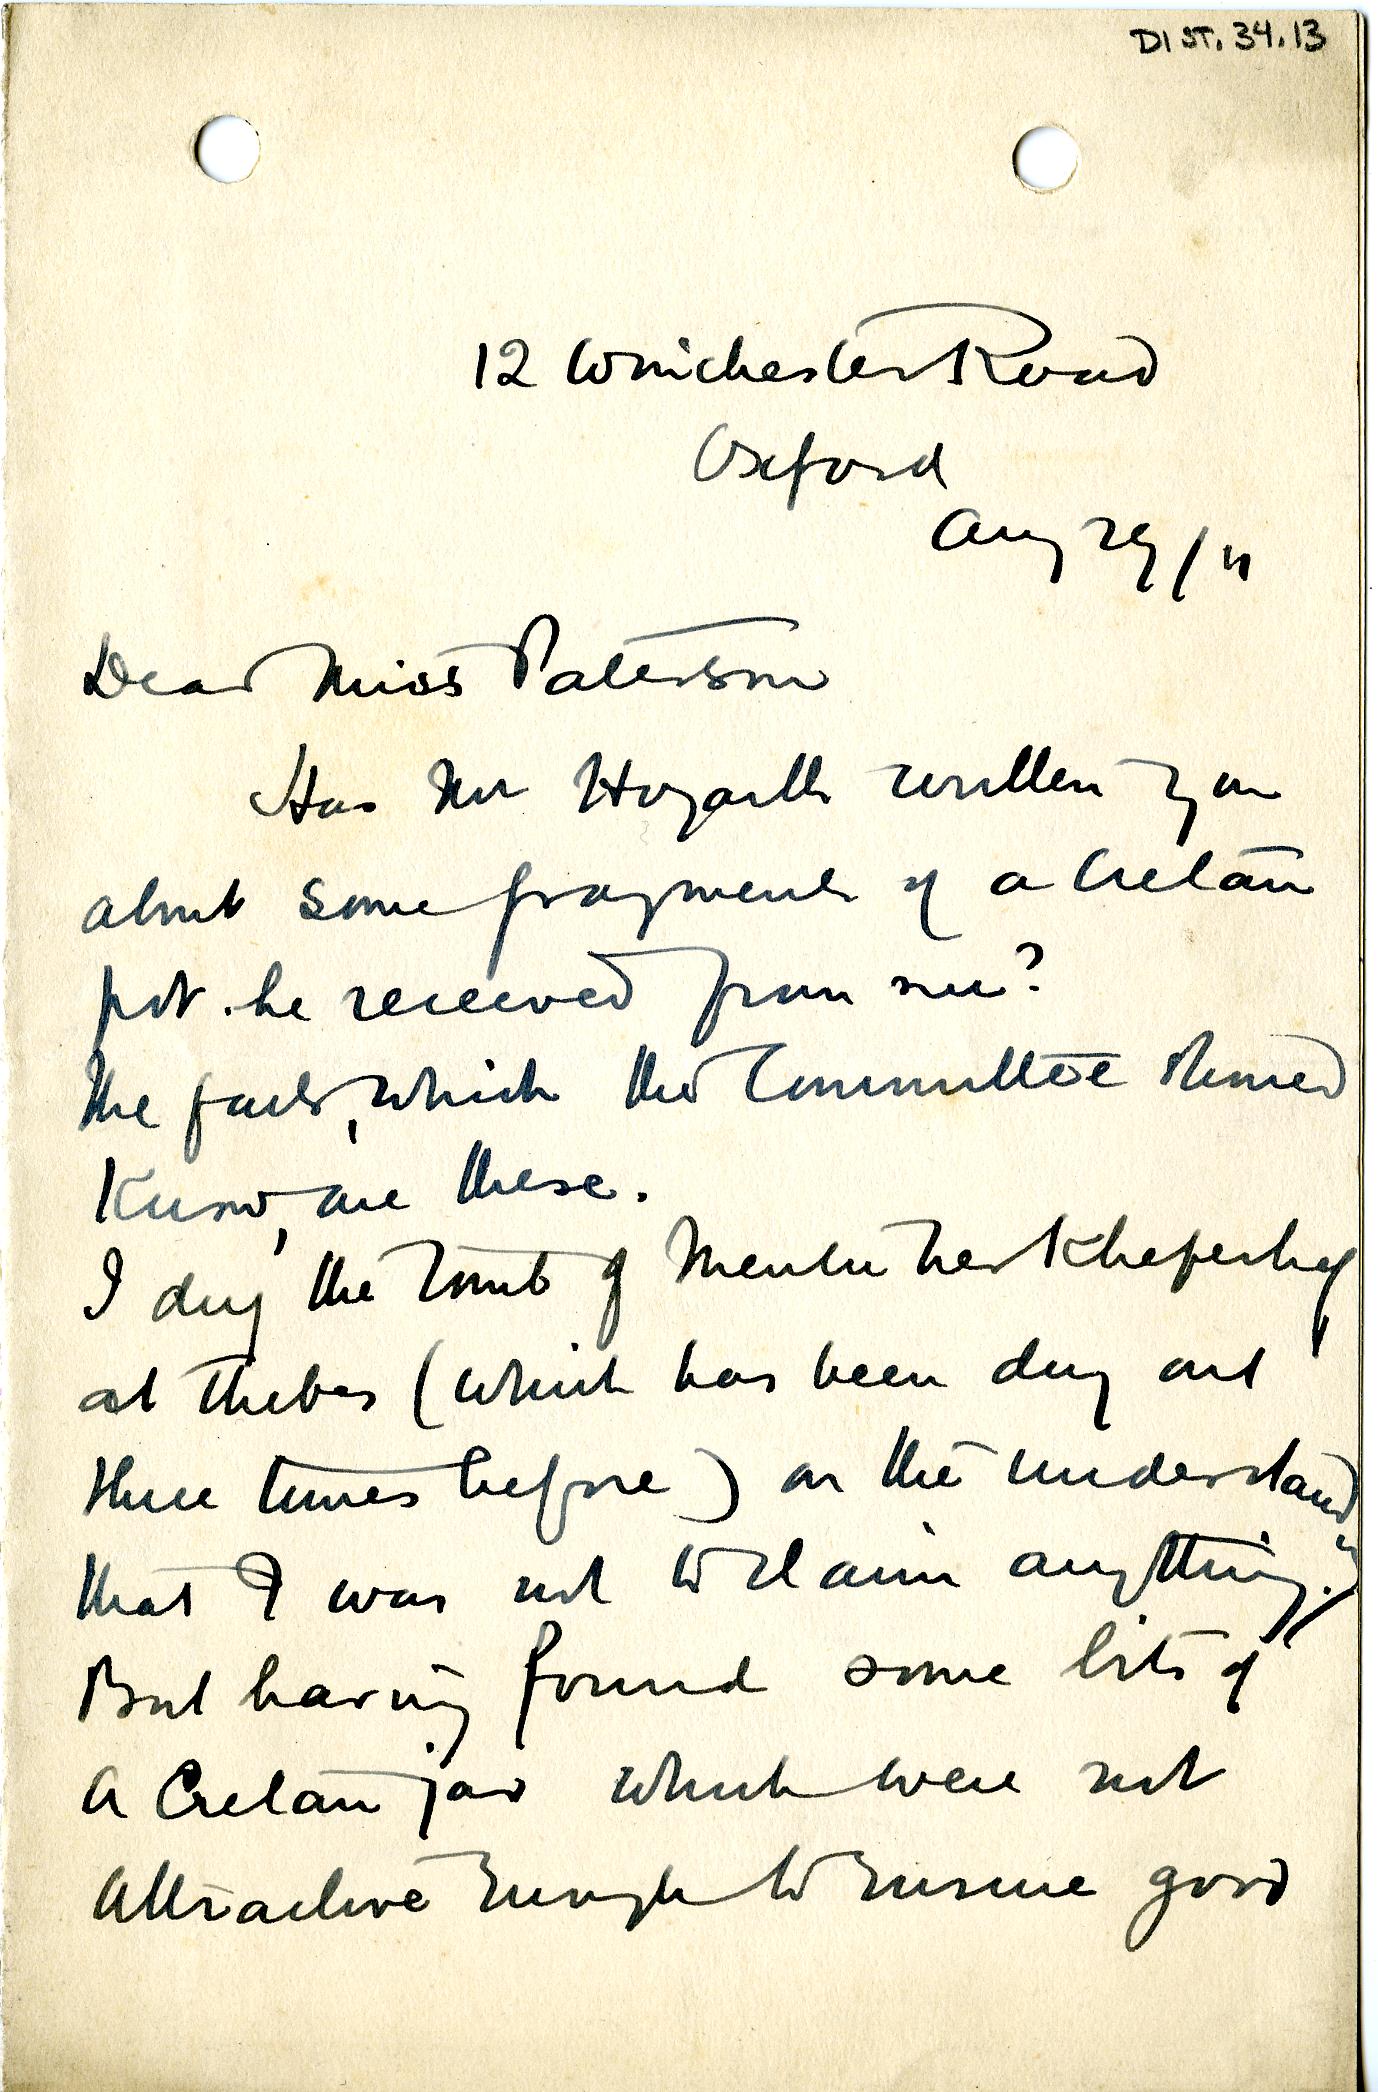 DIST. 34.13
12 Winchester Road
Oxford
Aug 29/11
Dear Miss Paterson
Has Mr Hogarth written you
about some fragments of a Cretan
pot he received from me?
The facts, which the Committee should
Know, are these.
I dug the tomb of Mentu her Khepeshef
at Thebes (which has been dug out
three times before) on the understanding
that I was not to claim anything.
But having found some bits of
a Cretan jar which were not
Attractive enough to ensure good